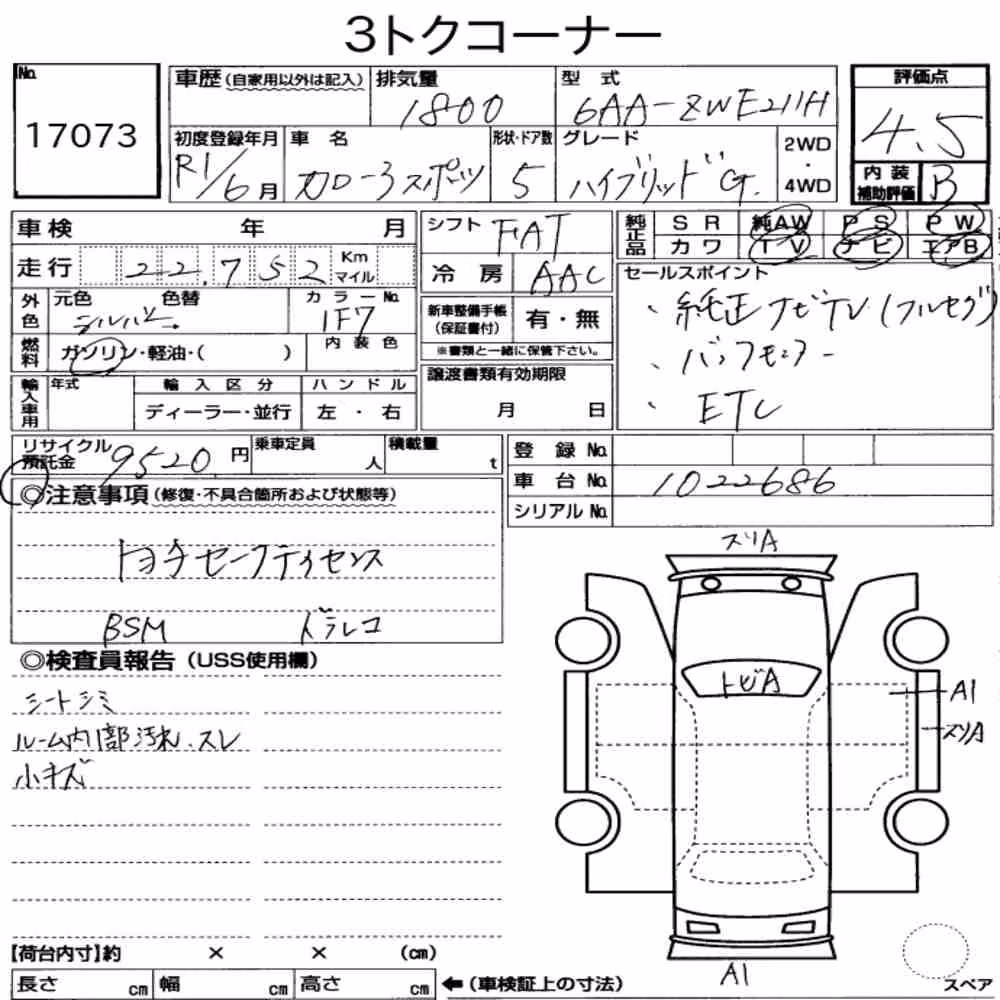 3トクコーナー
No. 17073
車歴 (自家用以外は記入) 排気量 1800 型式 6AA-ZWE211H
評価点 4.5
初度登録年月 R1/6月 車名 カローラスポーツ 形状・ドア数 5 グレード ハイブリッドG. 2WD・4WD
内装補助評価 B
車検 年 月
シフト FAT
純正品 SR 純AW PS PW
カワ TV ナビ エアB
走行 22,752 Km マイル
冷房 AAC
セールスポイント
外色 元色 シルバー 色替 カラーNo. 1F7
新車整備手帳 (保証書付) 有・無
・純正ナビTV(フルセグ)
燃料 ガソリン・軽油・( ) 内装色
※書類と一緒に保管下さい。
・バックモニター
輸入車用 年式 輸入区分 ハンドル
譲渡書類有効期限
ディーラー・並行 左・右
月 日
・ETC
リサイクル預託金 9520円 乗車定員 人 積載量 t
登録No.
車台No. 1022686
シリアルNo.
◎注意事項 (修復・不具合箇所および状態等)
トヨタセーフティセンス
BSM ドラレコ
◎検査員報告 (USS使用欄)
シートシミ
ルーム内1部汚れ、スレ
小キズ
スリA
トビA
A1
スリA
A1
スペア
【荷台内寸】約 × × (cm)
長さ cm 幅 cm 高さ cm ←(車検証上の寸法)